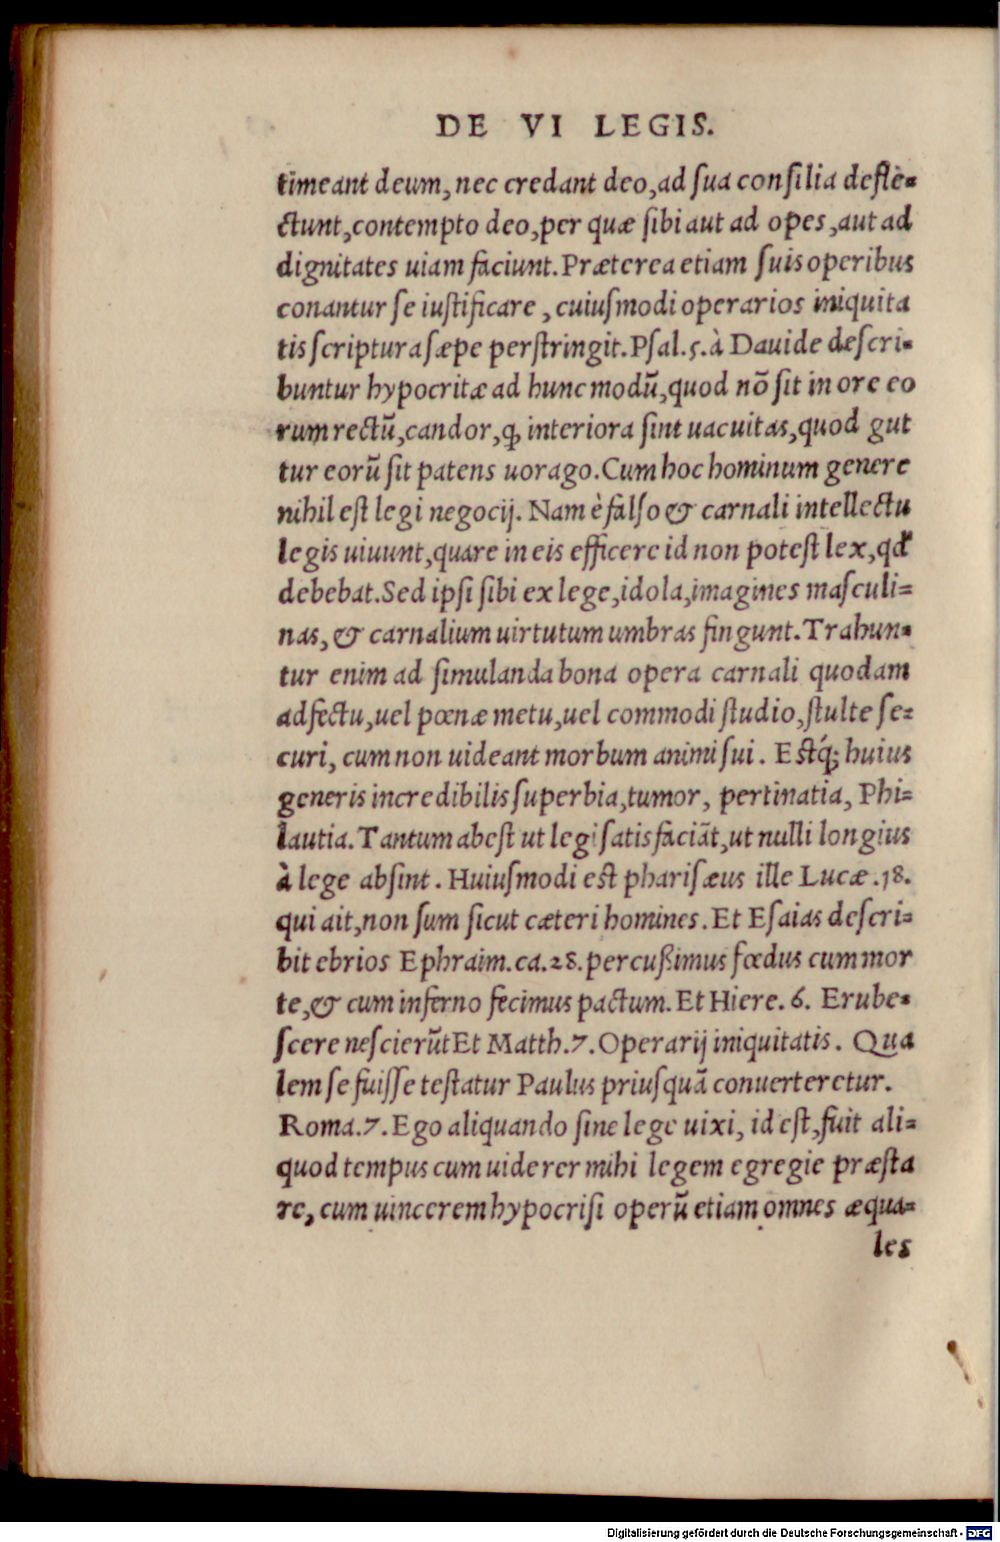 DE VI LEGIS.
timeant deum, nec credant deo, ad sua consilia deflè-
ctunt, contempto deo, per quæ sibi aut ad opes, aut ad
dignitates uiam faciunt. Præterea etiam suis operibus
conantur se iustificare, cuiusmodi operarios iniquita
tis scriptura sæpe perstringit. Psal. 5. à Dauide descri-
buntur hypocritæ ad hunc modũ, quod nõ sit in ore eo
rum rectũ, candor, ꝙ interiora sint uacuitas, quod gut
tur eorũ sit patens uorago. Cum hoc hominum genere
nihil est legi negocij. Nam è falso & carnali intellectu
legis uiuunt, quare in eis efficere id non potest lex, qđ
debebat. Sed ipsi sibi ex lege, idola, imagines masculi=
nas, & carnalium uirtutum umbras fingunt. Trahun-
tur enim ad simulanda bona opera carnali quodam
adfectu, uel pœnæ metu, uel commodi studio, stulte se=
curi, cum non uideant morbum animi sui. Estq́; huius
generis incredibilis superbia, tumor, pertinatia, Phi=
lautia. Tantum abest ut legi satisfaciãt, ut nulli longius
à lege absint. Huiusmodi est pharisæus ille Lucæ .18.
qui ait, non sum sicut cæteri homines. Et Esaias descri=
bit ebrios Ephraim. ca. 28. percußimus fœdus cum mor
te, & cum inferno fecimus pactum. Et Hiere. 6. Erube-
scere nescierũt Et Matth. 7. Operarij iniquitatis. Qua
lem se fuisse testatur Paulus priusquã conuerteretur.
Roma. 7. Ego aliquando sine lege uixi, id est, fuit ali=
quod tempus cum uiderer mihi legem egregie præsta
re, cum uincerem hypocrisi operũ etiam omnes æqua=
les
Digitalisierung gefördert durch die Deutsche Forschungsgemeinschaft - DFG